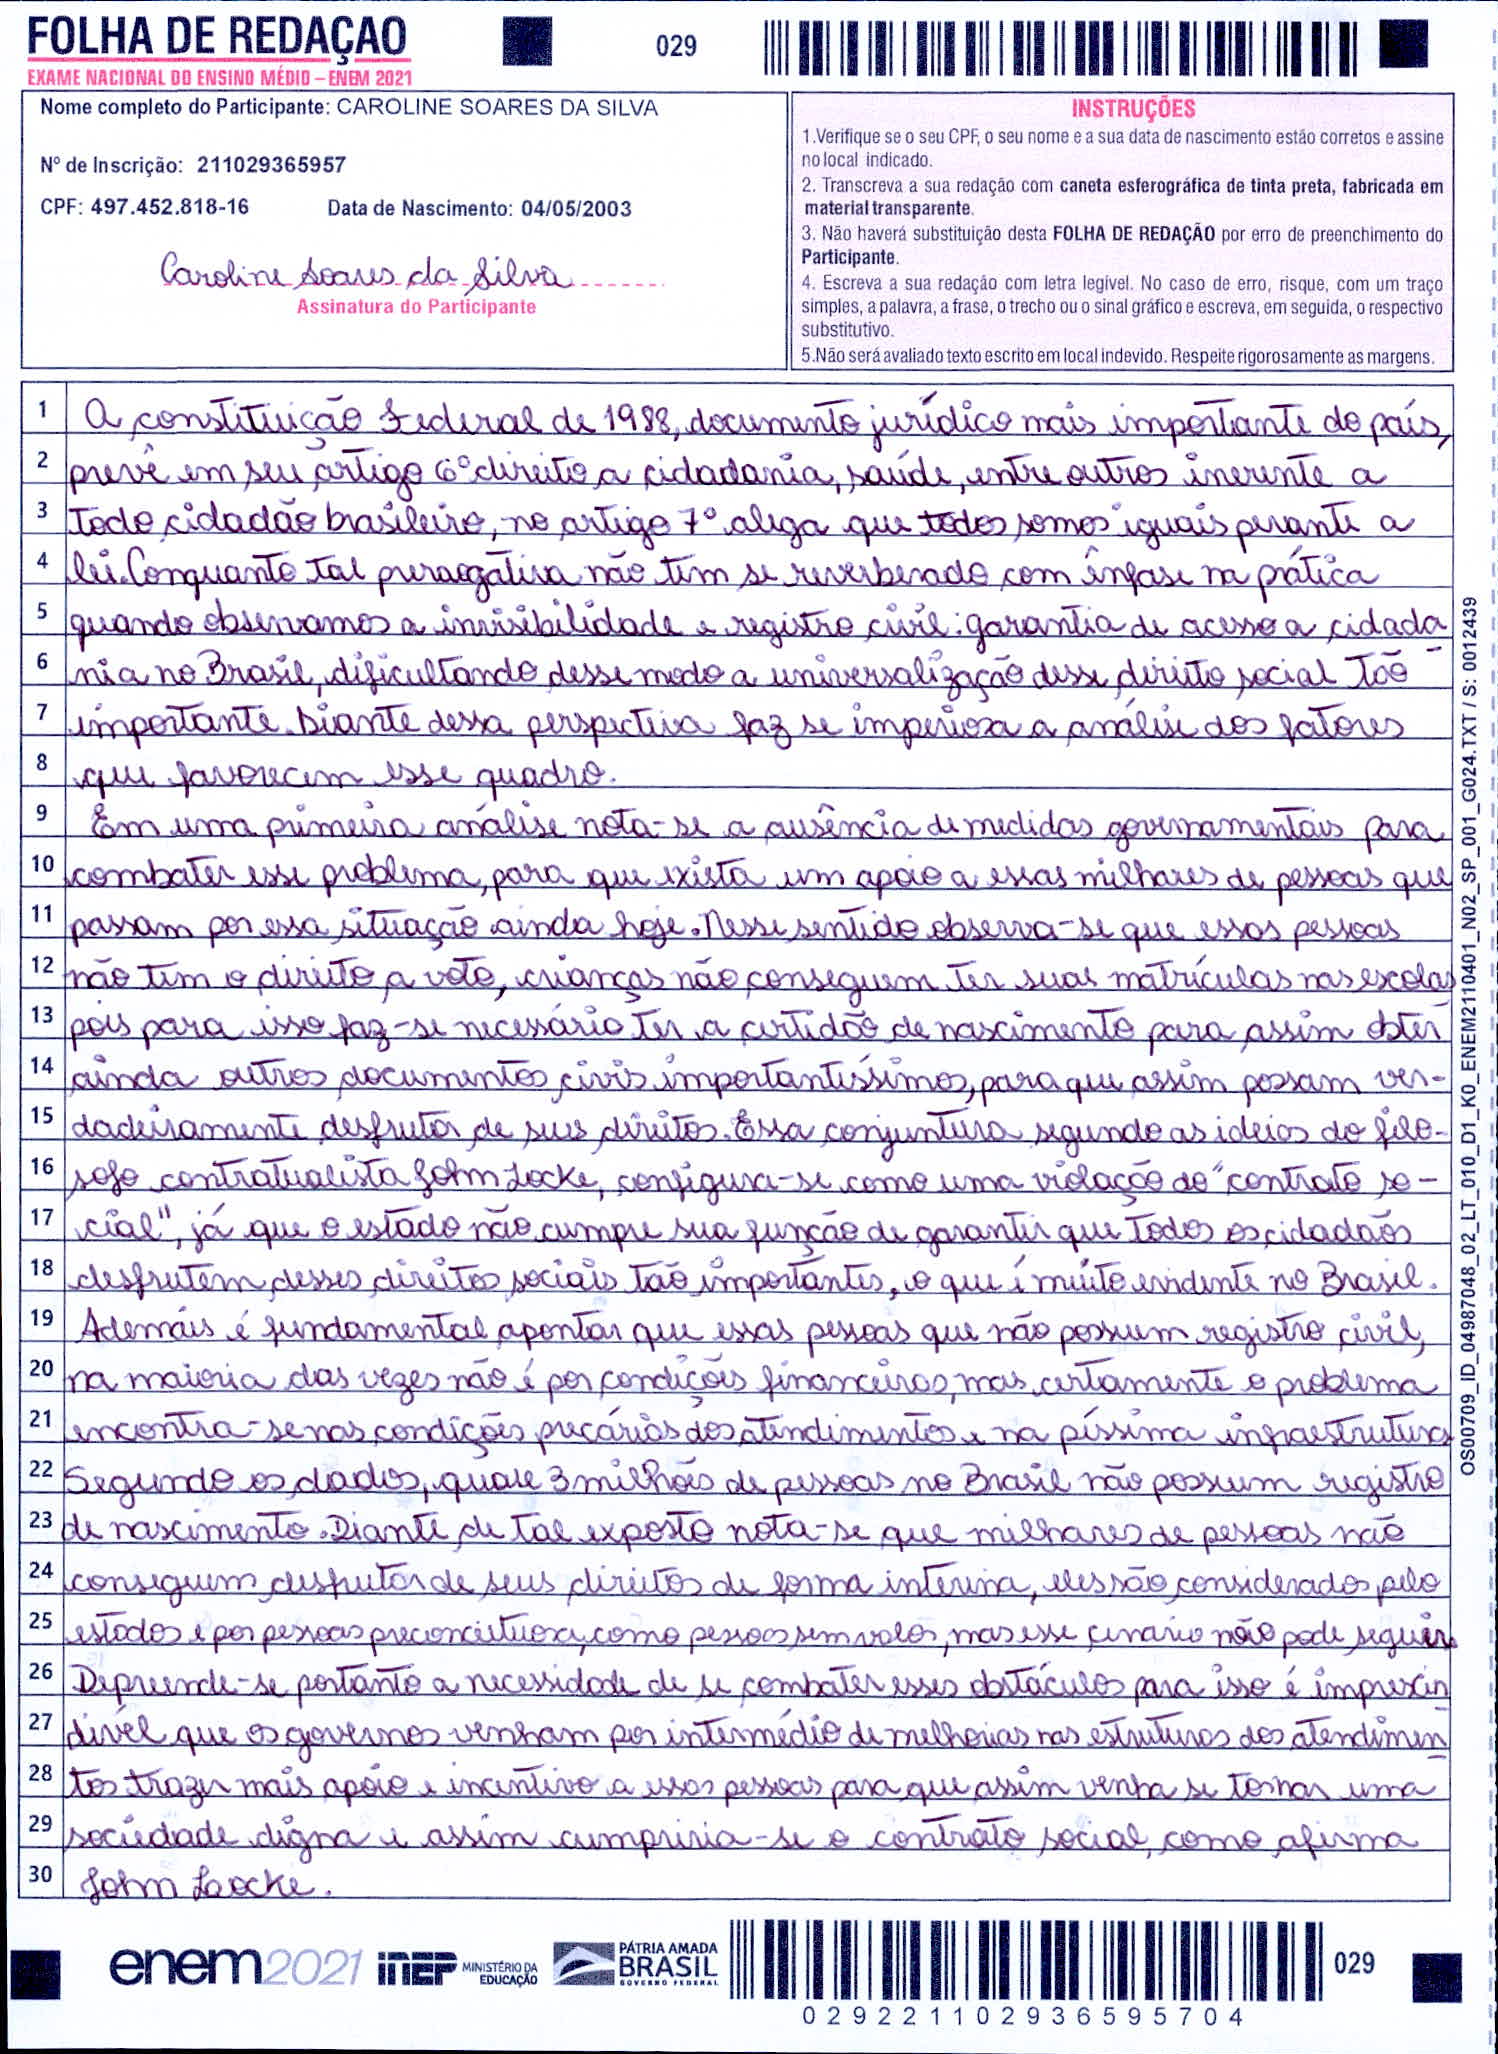 FOLHA DE REDAÇAO
029
EXAME NACIONAL DO ENSINO MÉDIO – ENEM 2021
Nome completo do Participante: CAROLINE SOARES DA SILVA
Nº de Inscrição: 211029365957
CPF: 497.452.818-16 Data de Nascimento: 04/05/2003
Caroline Soares da Silva
Assinatura do Participante
INSTRUÇÕES
1.Verifique se o seu CPF, o seu nome e a sua data de nascimento estão corretos e assine
no local indicado.
2. Transcreva a sua redação com caneta esferográfica de tinta preta, fabricada em
material transparente.
3. Não haverá substituição desta FOLHA DE REDAÇÃO por erro de preenchimento do
Participante.
4. Escreva a sua redação com letra legível. No caso de erro, risque, com um traço
simples, a palavra, a frase, o trecho ou o sinal gráfico e escreva, em seguida, o respectivo
substitutivo.
5.Não será avaliado texto escrito em local indevido. Respeite rigorosamente as margens.
1 A constituição Federal de 1988, documento jurídico mais importante do país,
2 prevê em seu artigo 6º direito a cidadania, saúde, entre outros inerente a
3 todo cidadão brasileiro, no artigo 7º alega que todos somos iguais perante a
4 lei. Conquanto tal prerrogativa não tem se reverberado com ênfase na prática
5 quando observamos a invisibilidade e registro civil: garantia de acesso a cidada
6 nia no Brasil, dificultando desse modo a universalização desse direito social tão
7 importante. Diante dessa perspectiva faz se imperiosa a análise dos fatores
8 que favorecem esse quadro.
9 Em uma primeira análise nota-se a ausência de medidas governamentais para
10 combater esse problema, para que exista um apoio a essas milhares de pessoas que
11 passam por essa situação ainda hoje. Nesse sentido observa-se que essas pessoas
12 não tem o direito a voto, crianças não conseguem ter suas matrículas nas escolas
13 pois para isso faz-se necessário ter a certidão de nascimento para assim obter
14 ainda outros documentos civis importantíssimos, para que assim possam ver-
15 dadeiramente desfrutar de seus direitos. Essa conjuntura segundo as ideias do filo-
16 sofo contratualista John Locke, configura-se como uma violação do "contrato so-
17 cial", já que o estado não cumpre sua função de garantir que todos os cidadãos
18 desfrutem desses direitos sociais tão importantes, o que é muito evidente no Brasil.
19 Ademais é fundamental apontar que essas pessoas que não possuem registro civil,
20 na maioria das vezes não é por condições financeiras, mas certamente o problema
21 encontra-se nas condições precárias dos atendimentos e na píssima infraestrutura
22 Segundo os dados, quase 3 milhões de pessoas no Brasil não possuem registro
23 de nascimento. Diante de tal exposto nota-se que milhares de pessoas não
24 conseguem desfrutar de seus direitos de forma interina, eles são considerados pelo
25 estados e por pessoas preconceituosa, como pessoas sem valor, mas esse cenário não pode seguir.
26 Depreende-se portanto a necessidade de se combater esses obstáculos para isso é imprescin
27 dível que os governos venham por intermédio de melhorias nas estruturas dos atendimen
28 tos trazer mais apoio e incentivo a essas pessoas para que assim venha se tornar uma
29 sociedade digna e assim cumpriria-se o contrato social, como afirma
30 John Locke.
OS00709_ID_04987048_02_LT_010_D1_K0_ENEM2110401_N02_SP_001_G024.TXT / S: 0012439
enem2021 inep MINISTÉRIO DA EDUCAÇÃO PÁTRIA AMADA BRASIL GOVERNO FEDERAL
029
029221102936595704